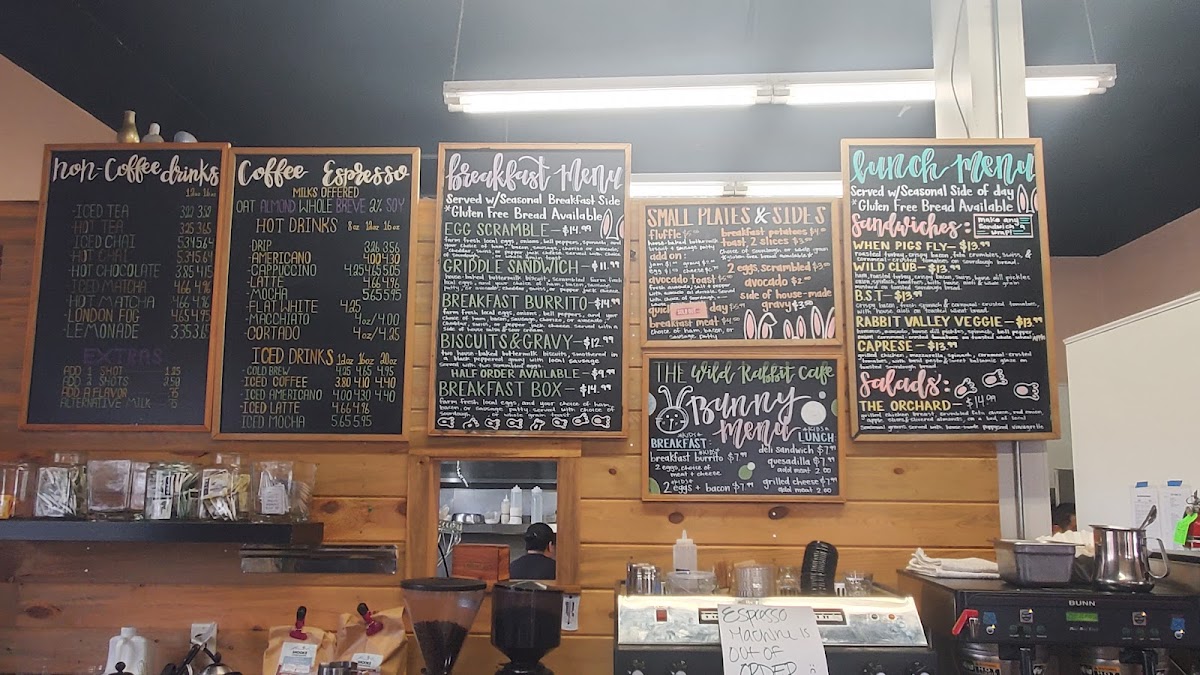 non-Coffee drinks
12oz 16oz
ICED TEA
HOT TEA 3.25 3.65
ICED CHAI 5.34 5.64
HOT CHAI 5.34 5.64
HOT CHOCOLATE 3.85 4.15
ICED MATCHA 4.66 4.96
HOT MATCHA 4.66 4.96
LONDON FOG 4.65 4.95
LEMONADE 3.35 3.65
EXTRAS
ADD 1 SHOT 1.25
ADD 2 SHOTS 2.50
ADD A FLAVOR .75
ALTERNATIVE MILK .75
Coffee Espresso
MILKS OFFERED
OAT ALMOND WHOLE BREVE 2% SOY
HOT DRINKS 8oz 12oz 16oz
DRIP 3.26 3.56
AMERICANO 4.00 4.30
CAPPUCCINO 4.35 4.65 5.05
LATTE 4.66 4.96
MOCHA 5.65 5.95
FLAT WHITE 4.25
MACCHIATO 4oz/4.00
CORTADO 4oz/4.25
ICED DRINKS 12oz 16oz 20oz
COLD BREW 4.25 4.65 4.95
ICED COFFEE 3.80 4.10 4.40
ICED AMERICANO 4.00 4.30 4.40
ICED LATTE 4.66 4.96
ICED MOCHA 5.65 5.95
breakfast Menu
Served w/Seasonal Breakfast Side
*Gluten Free Bread Available
EGG SCRAMBLE-$14.99
farm fresh local eggs, onions, bell peppers, spinach, and
your choice of ham, bacon, sausage, chorizo, or avocado,
GRIDDLE SANDWICH-$11.99
BREAKFAST BURRITO-$14.99
farm fresh local eggs, onions, bell peppers, and your
choice of ham, bacon, sausage, chorizo, or avocado,
cheddar, swiss, or pepper jack cheese. Served with a
side of house salsa & sour cream.
BISCUITS & GRAVY-$12.99
two house-baked buttermilk biscuits, smothered in
a black peppered gravy with local sausage
served with two scrambled eggs.
HALF ORDER AVAILABLE-$9.99
BREAKFAST BOX-$14.99
farm fresh local eggs, and your choice of ham,
bacon, or sausage patty served with choice of
sourdough, or whole grain toast
SMALL PLATES & SIDES
fluffle
house-baked buttermilk
biscuit & sausage patty
add on:
avocado toast
breakfast meat $4.00
choice of ham, bacon, or
sausage patty
breakfast potatoes
toast, 2 slices $3.00
2 eggs scrambled
avocado $2.00
side of house-made
gravy $3.50
THE Wild Rabbit Cafe
Bunny menu
*KIDS*
BREAKFAST:
breakfast burrito $7.99
2 eggs, choice of
meat + cheese
*KIDS*
2 eggs + bacon $7.99
*KIDS*
LUNCH
deli sandwich $7.99
quesadilla $7.99
add meat 2.00
grilled cheese $7.99
add meat 2.00
lunch menu
Served w/Seasonal Side of day
*Gluten Free Bread Available
Sandwiches:
Make any
Sandwich a
wrap!
WHEN PIGS FLY-$13.99
roasted turkey, crispy bacon, feta crumbles, swiss, &
caramel-crusted tomatoes on sourdough bread.
WILD CLUB-$13.99
B.S.T-$13.99
crispy bacon, fresh spinach & caramel-crusted tomatoes,
with house aioli on toasted wheat bread.
RABBIT VALLEY VEGGIE-$13.99
CAPRESE-$13.99
grilled chicken, mozzarella, spinach, caramel-crusted
tomatoes, with basil pesto & sweet balsamic glaze on
toasted sourdough bread.
Salads:
THE ORCHARD-$14.99
Espresso
Machine is
OUT OF
ORDER
BUNN